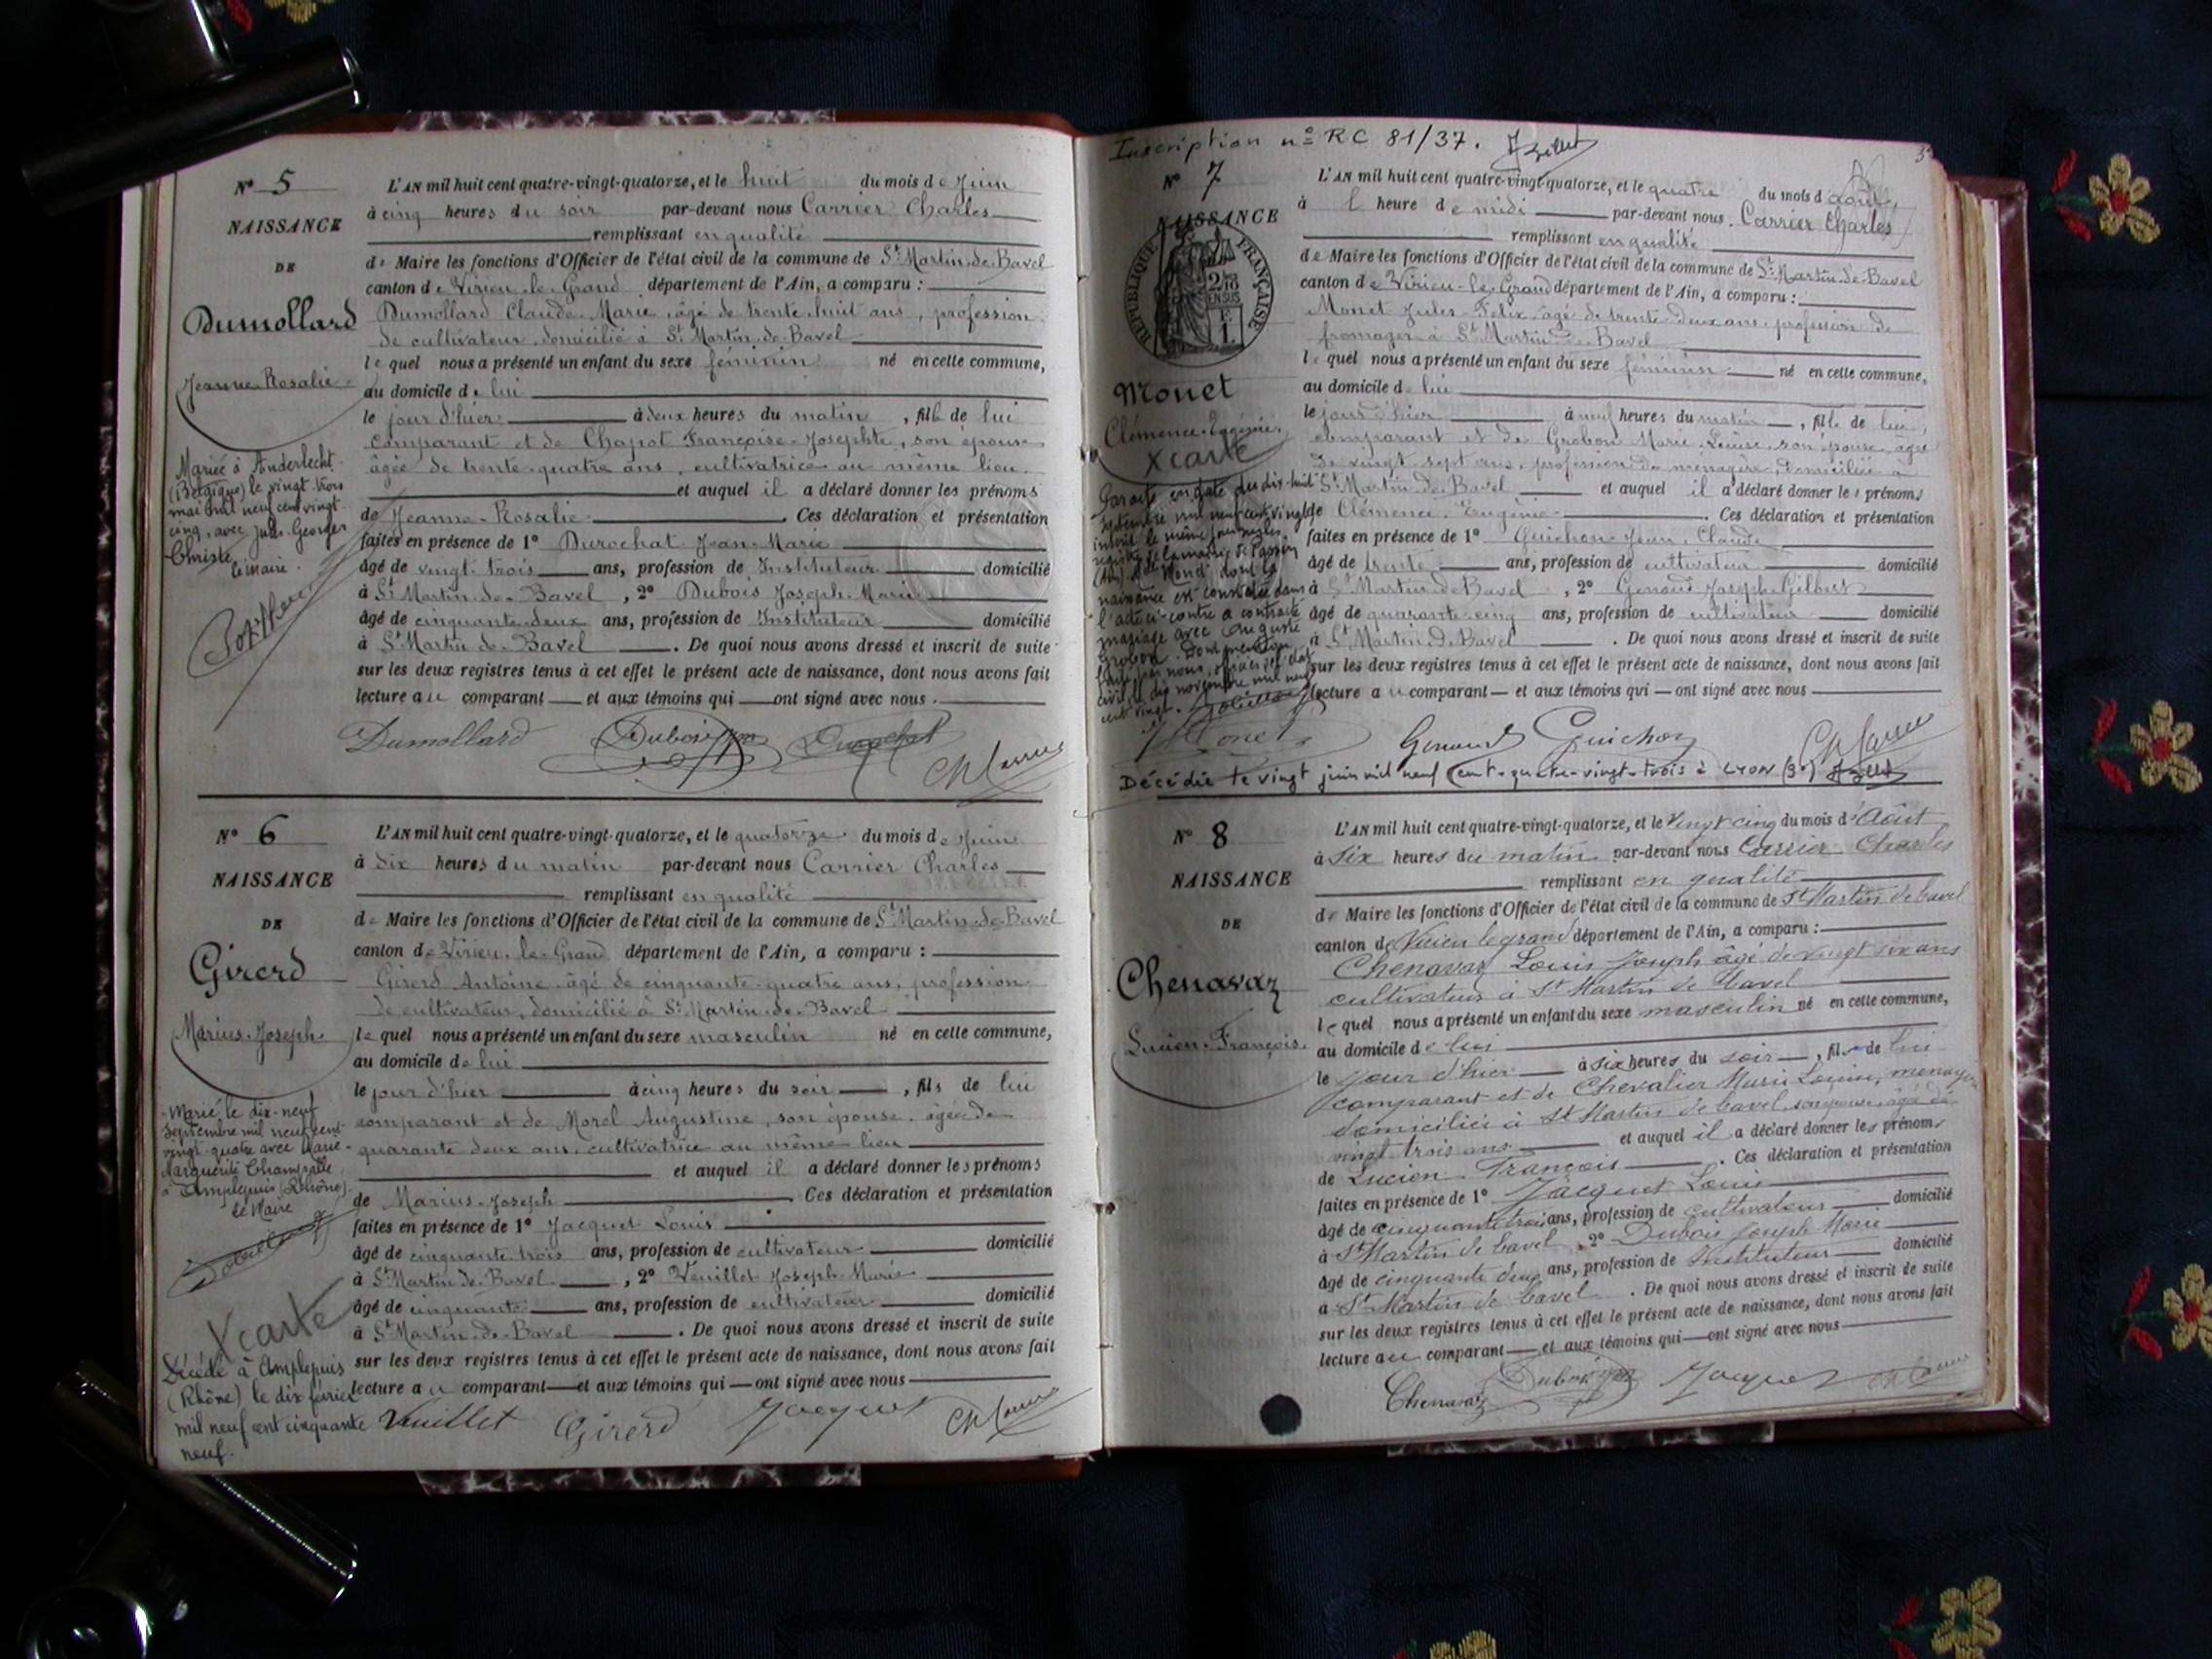 N° 5
NAISSANCE
DE
Dumollard
Jeanne-Rosalie
Mariée à Anderlecht
(Belgique) le vingt-trois
mai mil neuf cent vingt
cinq, avec Jules-Georges
Christe
le Maire.
L'AN mil huit cent quatre-vingt-quatorze, et le huit du mois de Juin
à cinq heures du soir par-devant nous Carrier Charles
remplissant en qualité
de Maire les fonctions d'Officier de l'état civil de la commune de St Martin-de-Bavel
canton de Virieu-le-Grand département de l'Ain, a comparu :
Dumollard Claude-Marie, âgé de trente-huit ans, profession
de cultivateur, domicilié à St Martin-de-Bavel
lequel nous a présenté un enfant du sexe féminin né en cette commune,
au domicile de lui
le jour d'hier à deux heures du matin, fille de lui
comparant et de Chapot Françoise-Josephte, son épouse
âgée de trente-quatre ans, cultivatrice au même lieu
et auquel il a déclaré donner les prénoms
de Jeanne-Rosalie. Ces déclaration et présentation
faites en présence de 1° Durochat Jean-Marie
âgé de vingt-trois ans, profession de Instituteur domicilié
à St Martin-de-Bavel, 2° Dubois Joseph-Marie
âgé de cinquante-deux ans, profession de Instituteur domicilié
à St Martin-de-Bavel. De quoi nous avons dressé et inscrit de suite
sur les deux registres tenus à cet effet le présent acte de naissance, dont nous avons fait
lecture au comparant et aux témoins qui ont signé avec nous.
Dumollard Dubois Durochat Ch Carrier
N° 6
NAISSANCE
DE
Girerd
Marius-Joseph
Marié le dix-neuf
septembre mil neuf cent
vingt-quatre avec Marie-
Marguerite
à Amplepuis (Rhône).
le Maire
X carte
Décédé à Amplepuis
(Rhône) le dix février
mil neuf cent cinquante
neuf.
L'AN mil huit cent quatre-vingt-quatorze, et le quatorze du mois de Juin
à dix heures du matin par-devant nous Carrier Charles
remplissant en qualité
de Maire les fonctions d'Officier de l'état civil de la commune de St Martin-de-Bavel
canton de Virieu-le-Grand département de l'Ain, a comparu :
Girerd Antoine âgé de cinquante-quatre ans, profession
de cultivateur, domicilié à St Martin-de-Bavel
lequel nous a présenté un enfant du sexe masculin né en cette commune,
au domicile de lui
le jour d'hier à cinq heures du soir, fils de lui
comparant et de Morel Augustine, son épouse, âgée de
quarante-deux ans, cultivatrice au même lieu
et auquel il a déclaré donner les prénoms
de Marius-Joseph. Ces déclaration et présentation
faites en présence de 1° Jacquet Louis
âgé de cinquante-trois ans, profession de cultivateur domicilié
à St Martin-de-Bavel, 2° Veuillet Joseph-Marie
âgé de cinquante ans, profession de cultivateur domicilié
à St Martin-de-Bavel. De quoi nous avons dressé et inscrit de suite
sur les deux registres tenus à cet effet le présent acte de naissance, dont nous avons fait
lecture au comparant et aux témoins qui ont signé avec nous
Vuillet Girerd Jacquet Ch Carrier
Inscription n° RC 81/37.
N° 7
NAISSANCE
REPUBLIQUE FRANÇAISE
Monet
Clémence-Eugénie
X carte
Par acte en date du dix-huit
septembre mil neuf cent vingt
inscrit le même jour
registre de la mairie de
(Ain) Monet dont la
naissance est constatée dans
l'acte ci-contre a contracté
mariage avec Auguste
Grobon. Dont mention
faite par nous, officier de l'état
civil le dix novembre mil neuf
cent vingt.
L'AN mil huit cent quatre-vingt-quatorze, et le quatre du mois d'août
à 1 heure de midi par-devant nous Carrier Charles
remplissant en qualité
de Maire les fonctions d'Officier de l'état civil de la commune de St Martin-de-Bavel
canton de Virieu-le-Grand département de l'Ain, a comparu :
Monet Jules-Félix âgé de trente-deux ans, profession de
fromager à St Martin-de-Bavel
lequel nous a présenté un enfant du sexe féminin né en cette commune,
au domicile de lui
le jour d'hier à neuf heures du matin, fille de lui,
comparant et de Grobon Marie-Louise, son épouse, âgée
de vingt-sept ans, profession de ménagère, domiciliée à
St Martin-de-Bavel et auquel il a déclaré donner les prénoms
de Clémence-Eugénie. Ces déclaration et présentation
faites en présence de 1° Guichon Jean-Claude
âgé de trente ans, profession de cultivateur domicilié
à St Martin-de-Bavel, 2° Genoud Joseph-Gilbert
âgé de quarante-cinq ans, profession de cultivateur domicilié
à St Martin-de-Bavel. De quoi nous avons dressé et inscrit de suite
sur les deux registres tenus à cet effet le présent acte de naissance, dont nous avons fait
lecture au comparant et aux témoins qui ont signé avec nous
Monet Genoud Guichon Ch Carrier
Décédée le vingt juin mil neuf cent quatre-vingt-trois à Lyon (3e)
N° 8
NAISSANCE
DE
Chenavaz
Lucien-François
L'AN mil huit cent quatre-vingt-quatorze, et le vingt cinq du mois d'Août
à six heures du matin par-devant nous Carrier Charles
remplissant en qualité
de Maire les fonctions d'Officier de l'état civil de la commune de St Martin de bavel
canton de Virieu le grand département de l'Ain, a comparu :
Chenavaz Louis Joseph âgé de vingt six ans
cultivateur à St Martin de Bavel
lequel nous a présenté un enfant du sexe masculin né en cette commune,
au domicile de lui
le jour d'hier à six heures du soir, fils de lui
comparant et de Chevalier Marie Louise, menagère
domiciliée à St Martin de bavel, son épouse, âgée de
vingt trois ans et auquel il a déclaré donner les prénoms
de Lucien François. Ces déclaration et présentation
faites en présence de 1° Jacquet Louis
âgé de cinquante trois ans, profession de cultivateur domicilié
à St Martin de bavel, 2° Dubois Joseph Marie
âgé de cinquante deux ans, profession de Instituteur domicilié
à St Martin de bavel. De quoi nous avons dressé et inscrit de suite
sur les deux registres tenus à cet effet le présent acte de naissance, dont nous avons fait
lecture au comparant et aux témoins qui ont signé avec nous
Chenavaz Dubois Jacquet Ch Carrier